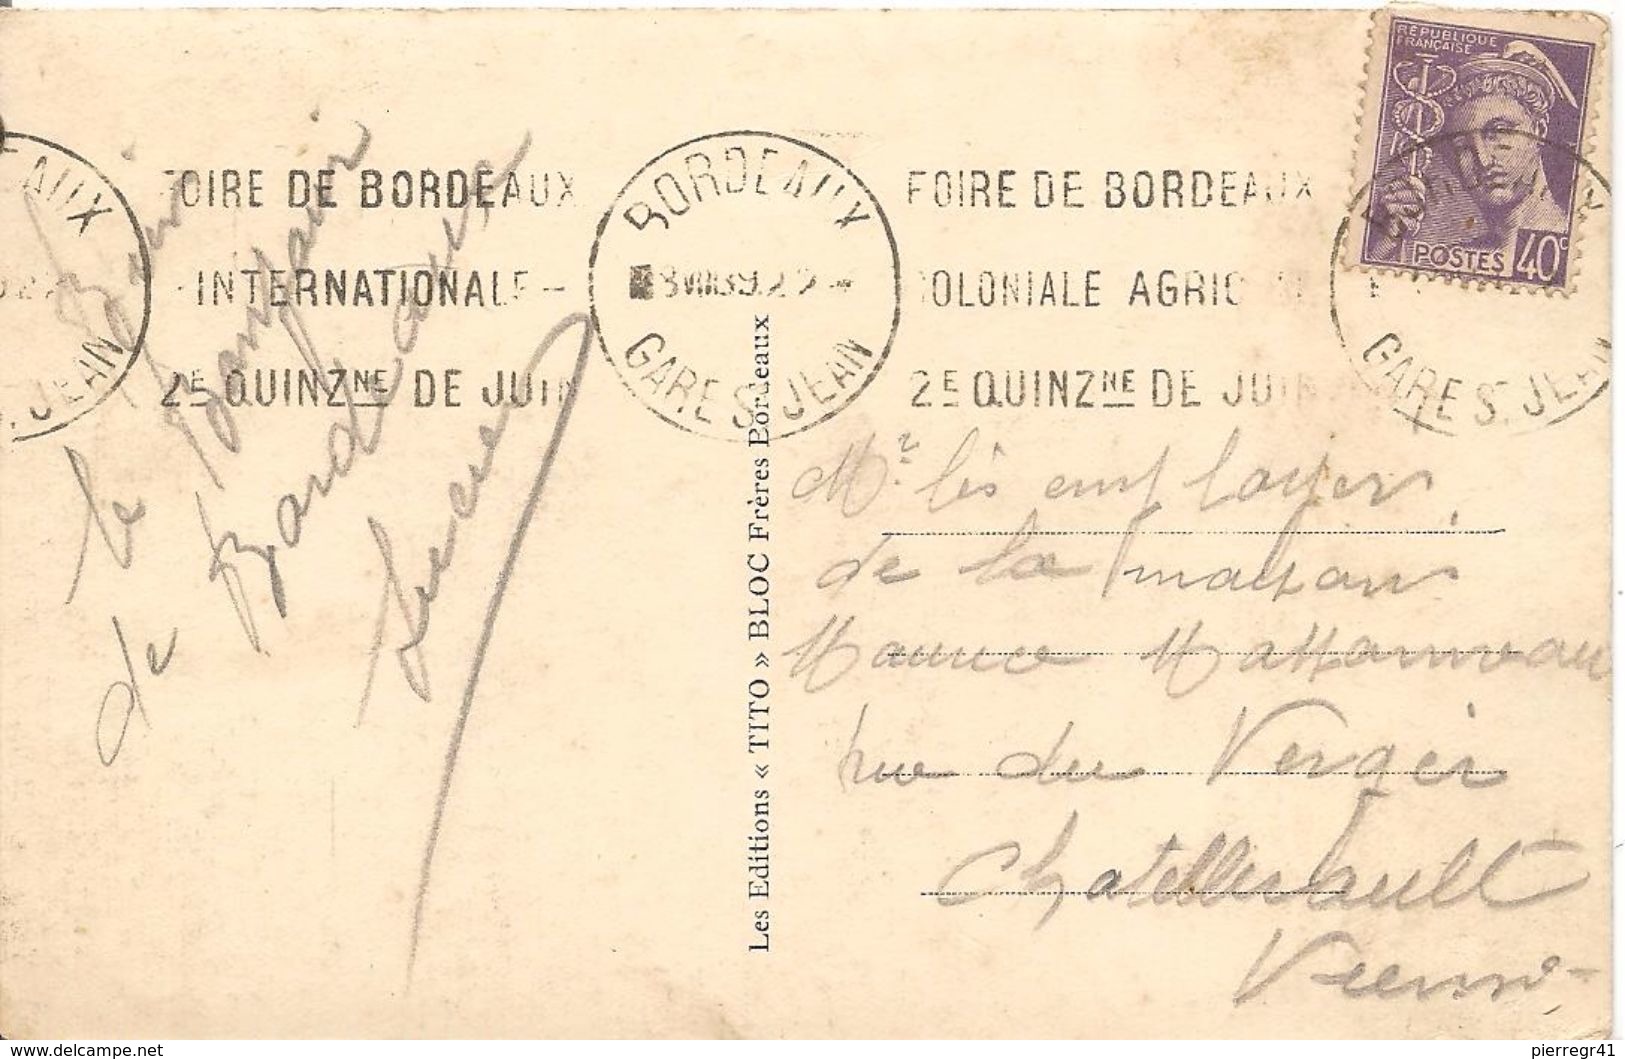 RÉPUBLIQUE
FRANÇAISE
POSTES 40c
BORDEAUX
GARE ST JEAN
FOIRE DE BORDEAUX
- INTERNATIONALE -
2E QUINZNE DE JUIN
BORDEAUX
8 VIII 39 22
GARE ST JEAN
FOIRE DE BORDEAUX
COLONIALE AGRICOLE
2E QUINZNE DE JUIN
GARE ST JEAN
le Bonjour
de Bordeaux
Lucien
Les Editions « TITO » BLOC Frères Bordeaux
Mr lès employer
de la maison
Maurice
rue du Verger
Chatellerault
Vienne
pierregr41